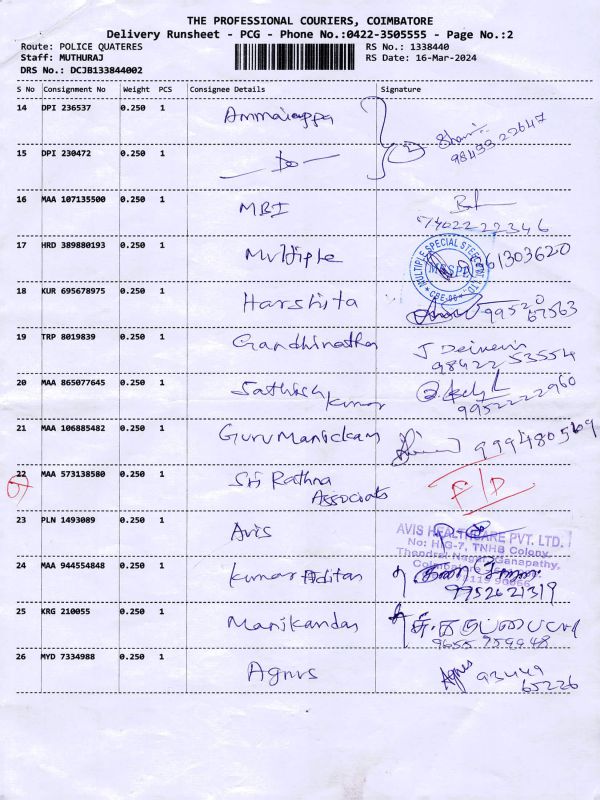 THE PROFESSIONAL COURIERS, COIMBATORE
Delivery Runsheet - PCG - Phone No.:0422-3505555 - Page No.:2
Route: POLICE QUATERES
RS No.: 1338440
Staff: MUTHURAJ
RS Date: 16-Mar-2024
DRS No.: DCJB133844002
S No Consignment No Weight PCS Consignee Details Signature
14 DPI 236537 0.250 1 Ammaiappa
98433 22647
15 DPI 230472 0.250 1 — Do —
16 MAA 107135500 0.250 1 MBI
17 HRD 389880193 0.250 1 Multiple
MULTIPLE SPECIAL STEEL PVT. LTD.
18 KUR 695678975 0.250 1 Harshita 99520
67563
19 TRP 8019839 0.250 1 Gandhinathan J
98422 53554
20 MAA 865077645 0.250 1 Sathish
Kumar 9952222960
21 MAA 106885482 0.250 1 Guru Manickam 9994805609
22 MAA 573138580 0.250 1 Sri Rathna
Associats F/D
23 PLN 1493089 0.250 1 Avis
AVIS HEALTHCARE PVT. LTD.
No: HIG-7, TNHB Colony,
Thendral Nagar, Ganapathy,
24 MAA 944554848 0.250 1 Kumar Aditan
9952621319
25 KRG 210055 0.250 1 Manikandan
9655 759948
26 MYD 7334988 0.250 1 Agnus Agnus 93449
65226